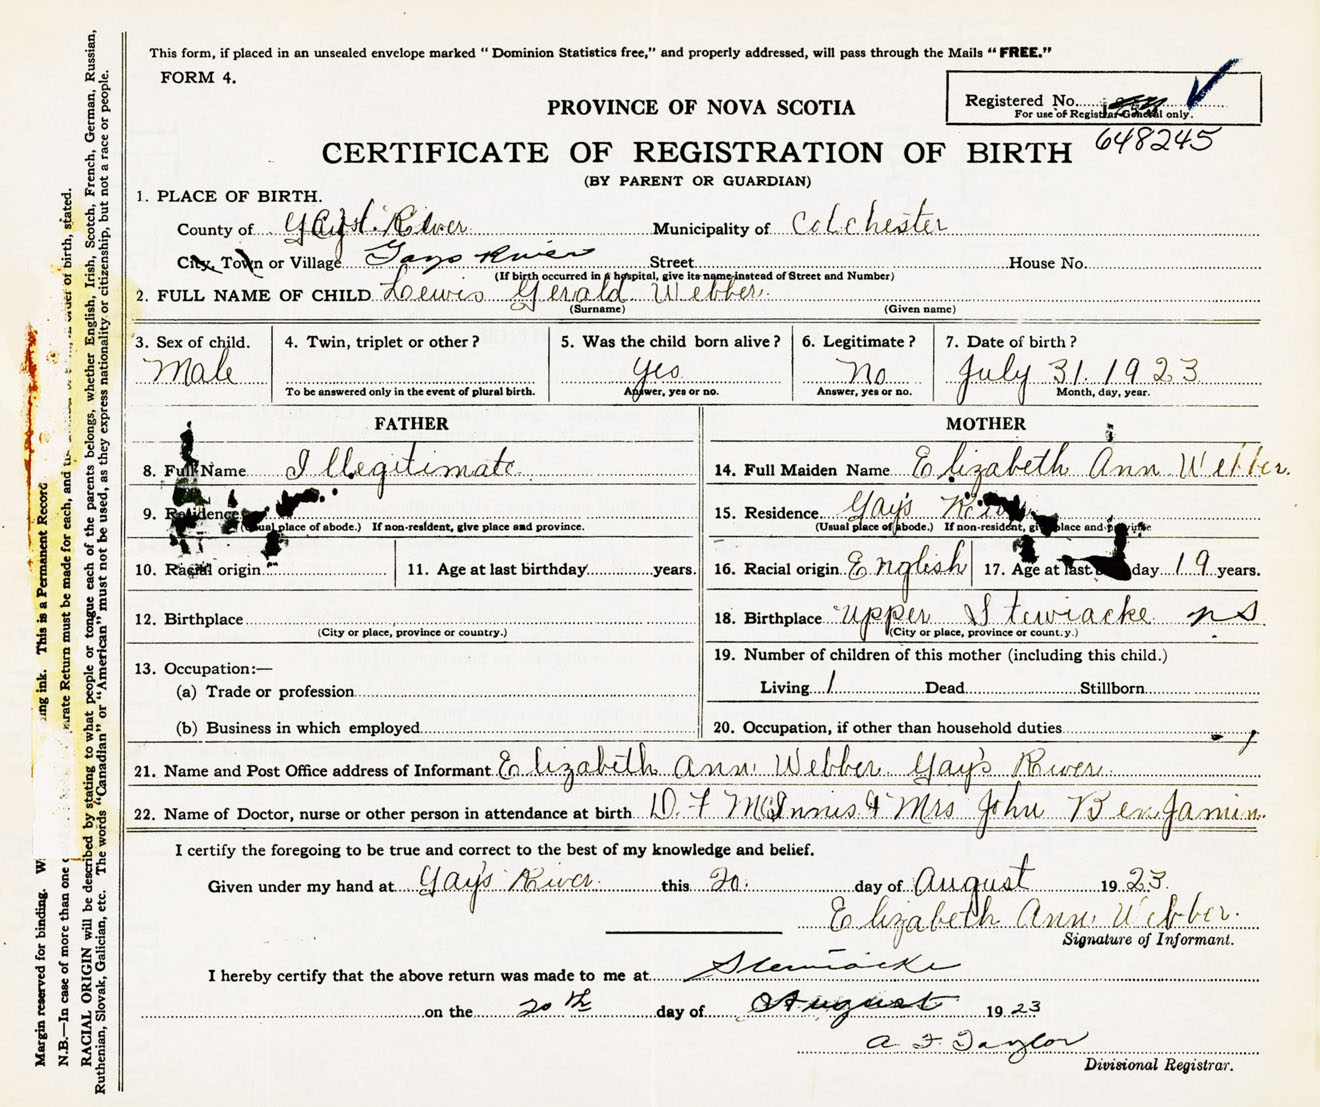 This form, if placed in an unsealed envelope marked "Dominion Statistics free," and properly addressed, will pass through the Mails "FREE."
FORM 4.
PROVINCE OF NOVA SCOTIA
Registered No.
For use of Registrar General only.
648245
CERTIFICATE OF REGISTRATION OF BIRTH
(BY PARENT OR GUARDIAN)
1. PLACE OF BIRTH.
County of Gay's River Municipality of Colchester
City, Town or Village Gays River Street House No.
(If birth occurred in a hospital, give its name instead of Street and Number)
2. FULL NAME OF CHILD Lewis Gerald Webber
(Surname) (Given name)
3. Sex of child. 4. Twin, triplet or other? 5. Was the child born alive? 6. Legitimate? 7. Date of birth?
Male yes No July 31. 1923
To be answered only in the event of plural birth. Answer, yes or no. Answer, yes or no. Month, day, year.
FATHER MOTHER
8. Full Name Illegitimate 14. Full Maiden Name Elizabeth Ann Webber.
9. Residence 15. Residence Gay's River
(Usual place of abode.) If non-resident, give place and province. (Usual place of abode.) If non-resident, give place and province
10. Racial origin 11. Age at last birthday years. 16. Racial origin English 17. Age at last birthday 19 years.
12. Birthplace 18. Birthplace upper Stewiacke n S
(City or place, province or country.) (City or place, province or country.)
19. Number of children of this mother (including this child.)
13. Occupation:—
(a) Trade or profession Living 1 Dead Stillborn
(b) Business in which employed 20. Occupation, if other than household duties
21. Name and Post Office address of Informant Elizabeth Ann Webber Gay's River
22. Name of Doctor, nurse or other person in attendance at birth D. F McInnis & Mrs John Benjamin.
I certify the foregoing to be true and correct to the best of my knowledge and belief.
Given under my hand at Gay's River this 20. day of August 1923.
Elizabeth Ann Webber.
Signature of Informant.
I hereby certify that the above return was made to me at Stewiacke
on the 20th day of August 1923
A. F. Taylor
Divisional Registrar.
Margin reserved for binding. ing ink. This is a Permanent Record
N.B.—In case of more than one rate Return must be made for each, and order of birth, stated.
RACIAL ORIGIN will be described by stating to what people or tongue each of the parents belongs, whether English, Irish, Scotch, French, German, Russian,
Ruthenian, Slovak, Galician, etc. The words "Canadian" or "American" must not be used, as they express nationality or citizenship, but not a race or people.